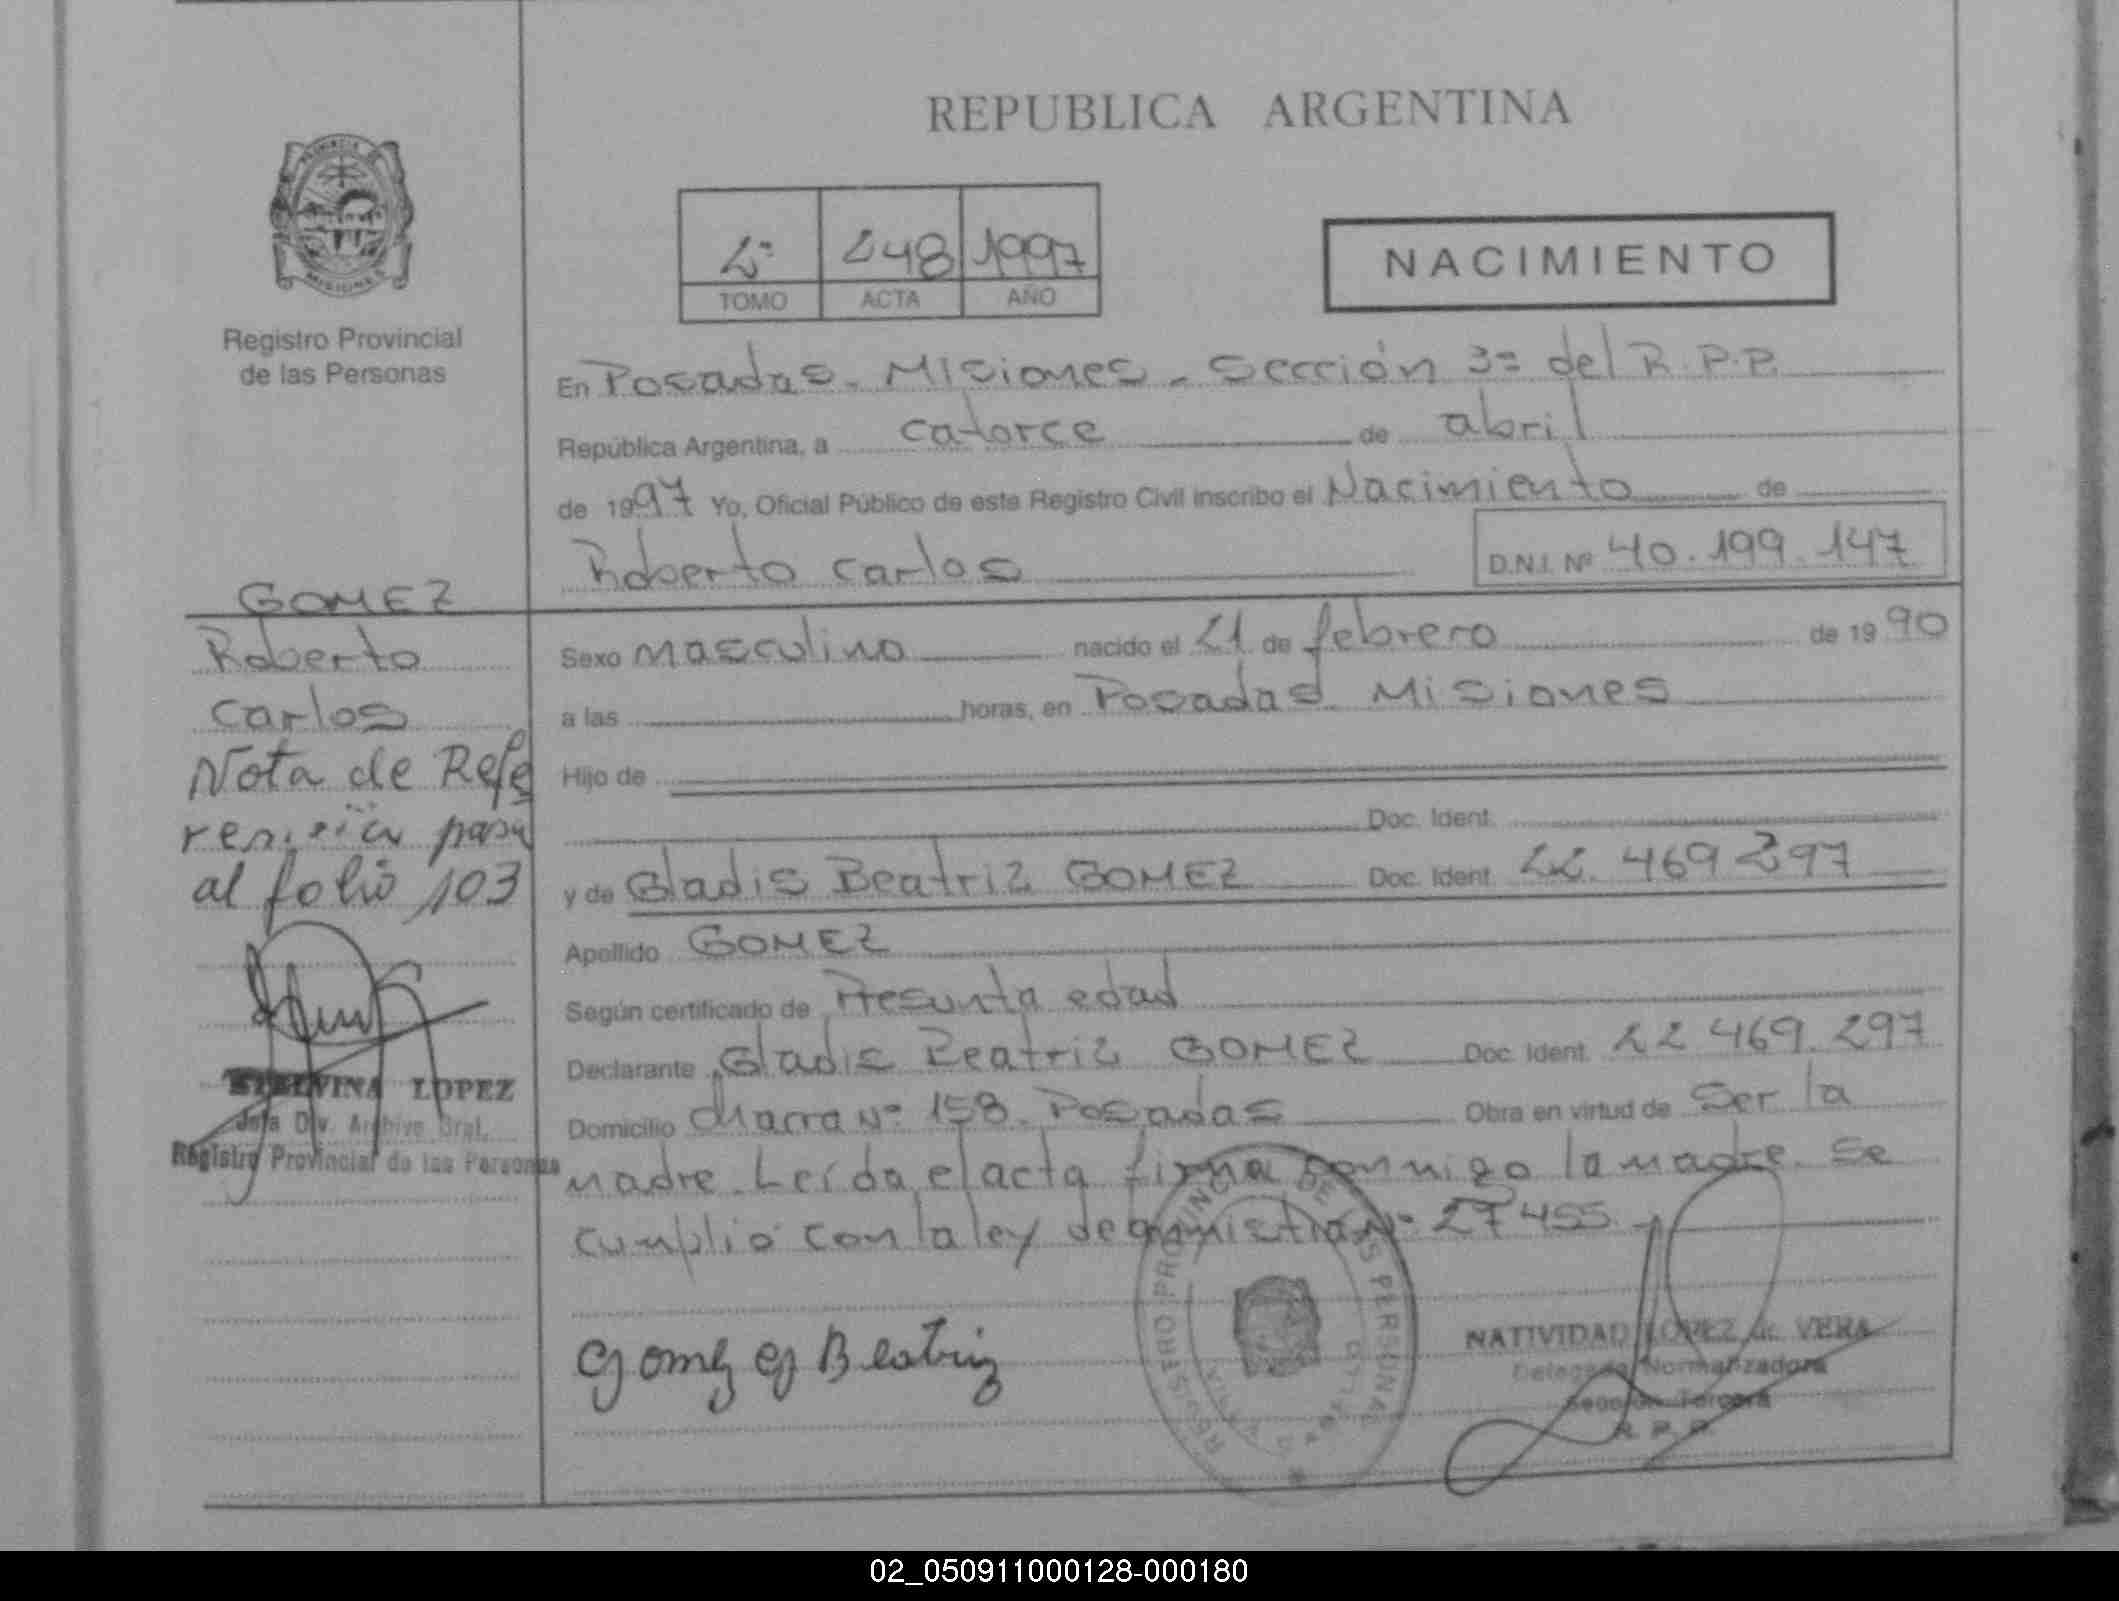 REPUBLICA ARGENTINA
PROVINCIA DE
MISIONES
Registro Provincial
de las Personas
2º 248 1997
TOMO ACTA AÑO
NACIMIENTO
En Posadas - Misiones - Sección 3ª del R.P.P.
República Argentina, a catorce de abril
de 1997 Yo, Oficial Público de este Registro Civil inscribo el Nacimiento de
Roberto Carlos D.N.I. Nº 40.199.147
Sexo Masculino nacido el 21 de febrero de 1990
a las horas, en Posadas Misiones
Hijo de
Doc. Ident.
y de Gladis Beatriz GOMEZ Doc. Ident. 22.469.297
Apellido GOMEZ
Según certificado de Presunta edad
Declarante Gladis Beatriz GOMEZ Doc. Ident. 22 469.297
Domicilio Chacra Nº 158. Posadas Obra en virtud de Ser la
madre. Leída el acta firma conmigo la madre. Se
cumplió con la ley de amnistía Nº 27455
GOMEZ
Roberto
Carlos
Nota de Refe
rencia pasa
al folio 103
LOPEZ
Jefa Div. Archivo Gral.
Registro Provincial de las Personas
Gomez G Beatriz
REGISTRO PROVINCIAL DE LAS PERSONAS
NATIVIDAD LOPEZ de VERA
Delegada Normalizadora
Sección Tercera
R. P. P.
02_050911000128-000180